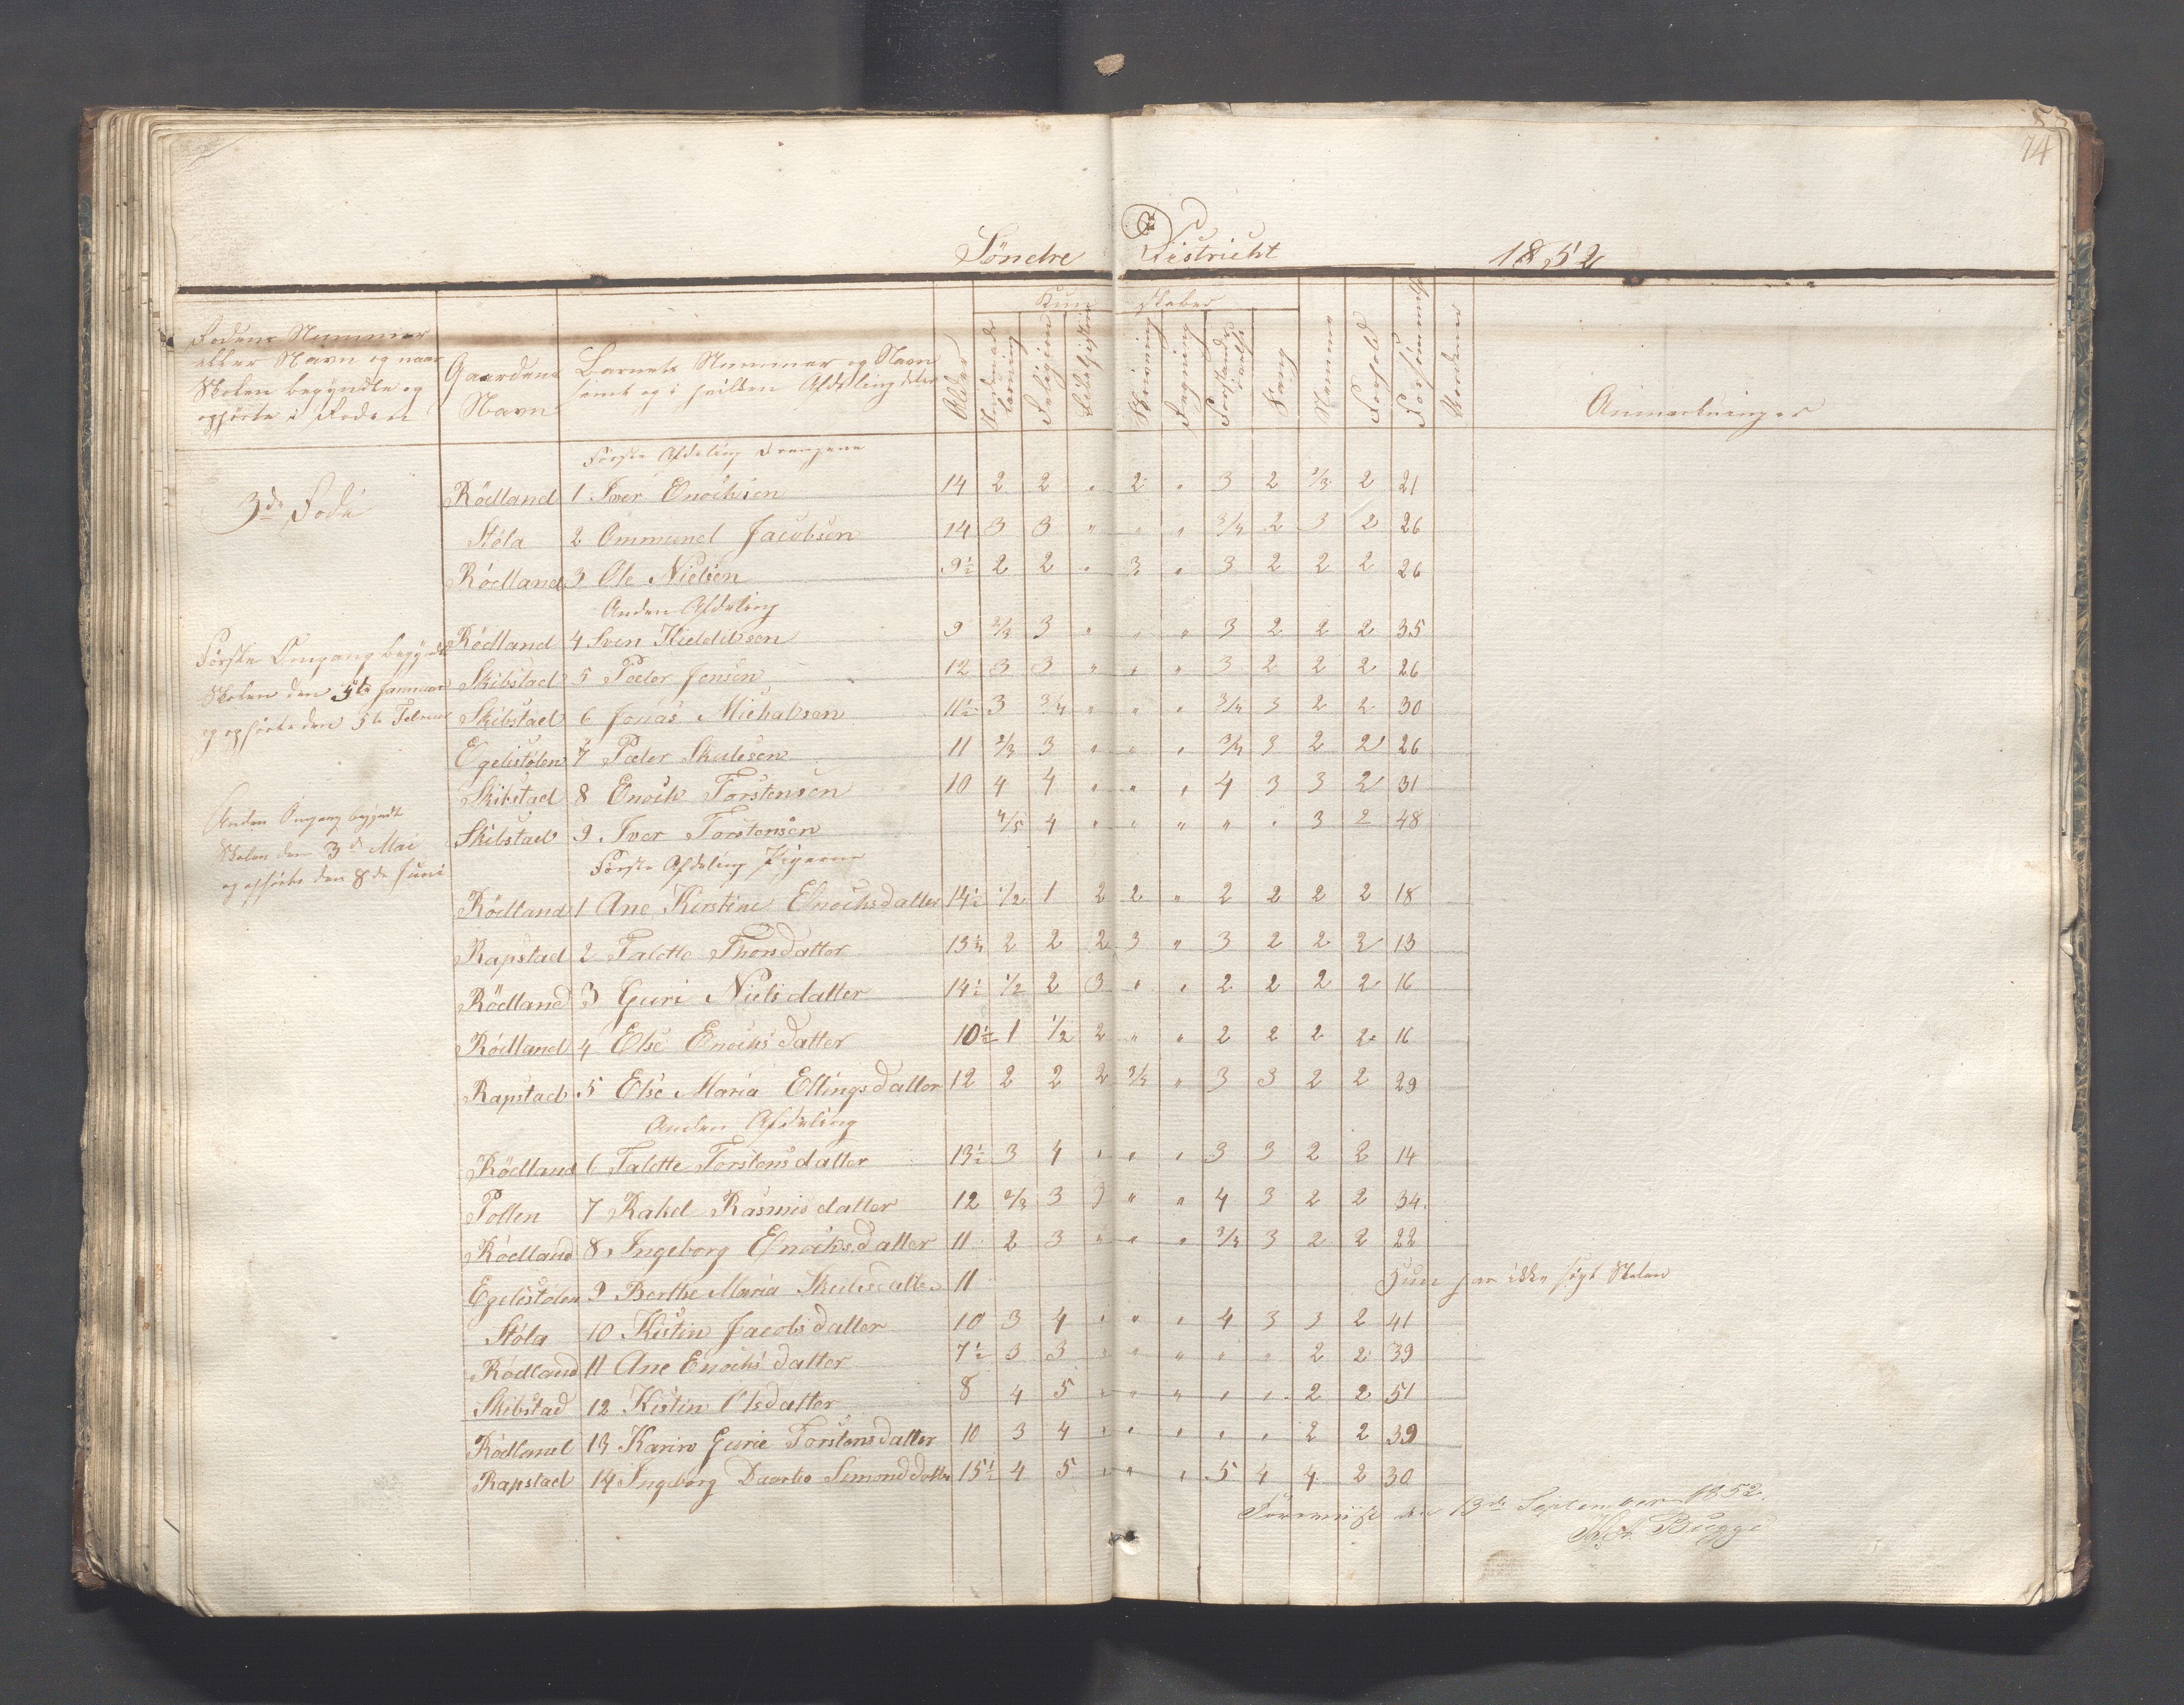 74
Söndre District 1852
Rodens Nummer
eller Navn og naar
Skolen begyndte og
ophörte i Roden
Gaardens
Navn
Barnets Nummer og Navn
samt og i hvilken Afdeling det er
Alder
Kundskaber
Religion
Skrivning
Regning
Sang
Nemme
Forhold
Anmærkninger
Förste Afdeling Drengene
3de Rode
Rödland 1 Iver Enochsen 14 2 2 " 2 " 3 2 2/3 2 21
Stöla 2 Ommund Jacobsen 14 3 3 " " " 3/4 2 3 2 26
Rödland 3 Ole Nielsen 9½ 2 2 " 3 " 3 2 2 2 26
Anden Afdeling
Rödland 4 Sven Kieldilsen 9 2/3 3 " " " 3 2 2 2 35
Förste Omgang begyndte
Skolen den 5te Januar
og ophörte den 5te Februar
Skibstad 5 Peder Jensen 12 3 3 " " " 3 2 2 2 26
Skibstad 6 Jonas Michalsen 11½ 3 3/4 " " " 3/4 3 2 2 30
Egelistölen 7 Peder Skulesen 11 2/3 3 " " " 3/4 3 2 2 26
Skibstad 8 Enoch Torstensen 10 4 4 " " " 4 3 3 2 31
Anden Omgang begyndte
Skolen den 3de Mai
og ophörte den 8de Juni
Skibstad 9 Iver Torstensen 4/5 4 " " " " " 3 2 48
Förste Afdeling Pigerne
Rödland 1 Ane Kirstine Enochsdatter 14½ 1/2 1 2 2 " 2 2 2 2 18
Rapstad 2 Talette Thorsdatter 13¼ 2 2 2 3 " 3 2 2 2 13
Rödland 3 Guri Nielsdatter 14½ 1/2 2 3 " " 2 2 2 2 16
Rödland 4 Else Enochsdatter 10½ 1 1/2 2 " " 2 2 2 2 16
Rapstad 5 Else Maria Ellingsdatter 12 2 2 2 " 3 3 2 2 29
Anden Afdeling
Rödland 6 Talette Torstensdatter 13½ 3 4 " " " 3 3 2 2 14
Pollen 7 Rakel Rasmisdatter 12 2/3 3 3 " " 4 3 2 2 34
Rödland 8 Ingeborg Enochsdatter 11 2 3 " " " 3/4 3 2 2 22
Egelistölen 9 Berthe Maria Skulesdatter 11 Hun har ikke sögt Skolen
Stöla 10 Kistin Jacobsdatter 10 3 4 " " " 4 3 3 2 41
Rödland 11 Ane Enochsdatter 7½ 3 3 " " " " " 2 2 39
Skibstad 12 Kistin Olsdatter 8 4 5 " " " " " 2 2 51
Rödland 13 Karin Gurie Torstensdatter 10 3 4 " " " " " 2 2 39
Rapstad 14 Ingeborg Daartea Simonsdatter 15½ 4 5 " " " 5 4 4 2 30
den 13de September 1852.
Bugge